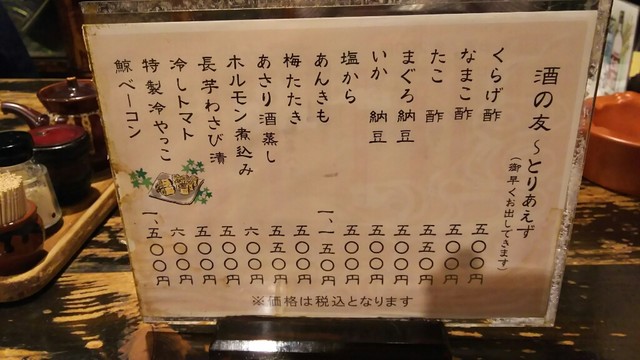 酒の友～とりあえず
（御早くお出してきます）
くらげ酢 五〇〇円
なまこ酢 五〇〇円
たこ 酢 五五〇円
まぐろ納豆 五〇〇円
いか 納豆 五〇〇円
塩から 五〇〇円
あんきも 一、一五〇円
梅たたき 五〇〇円
あさり酒蒸し 五五〇円
ホルモン煮込み 六〇〇円
長芋わさび漬 五〇〇円
冷しトマト 五〇〇円
特製冷やっこ 六〇〇円
鯨ベーコン 一、五〇〇円
※価格は税込となります